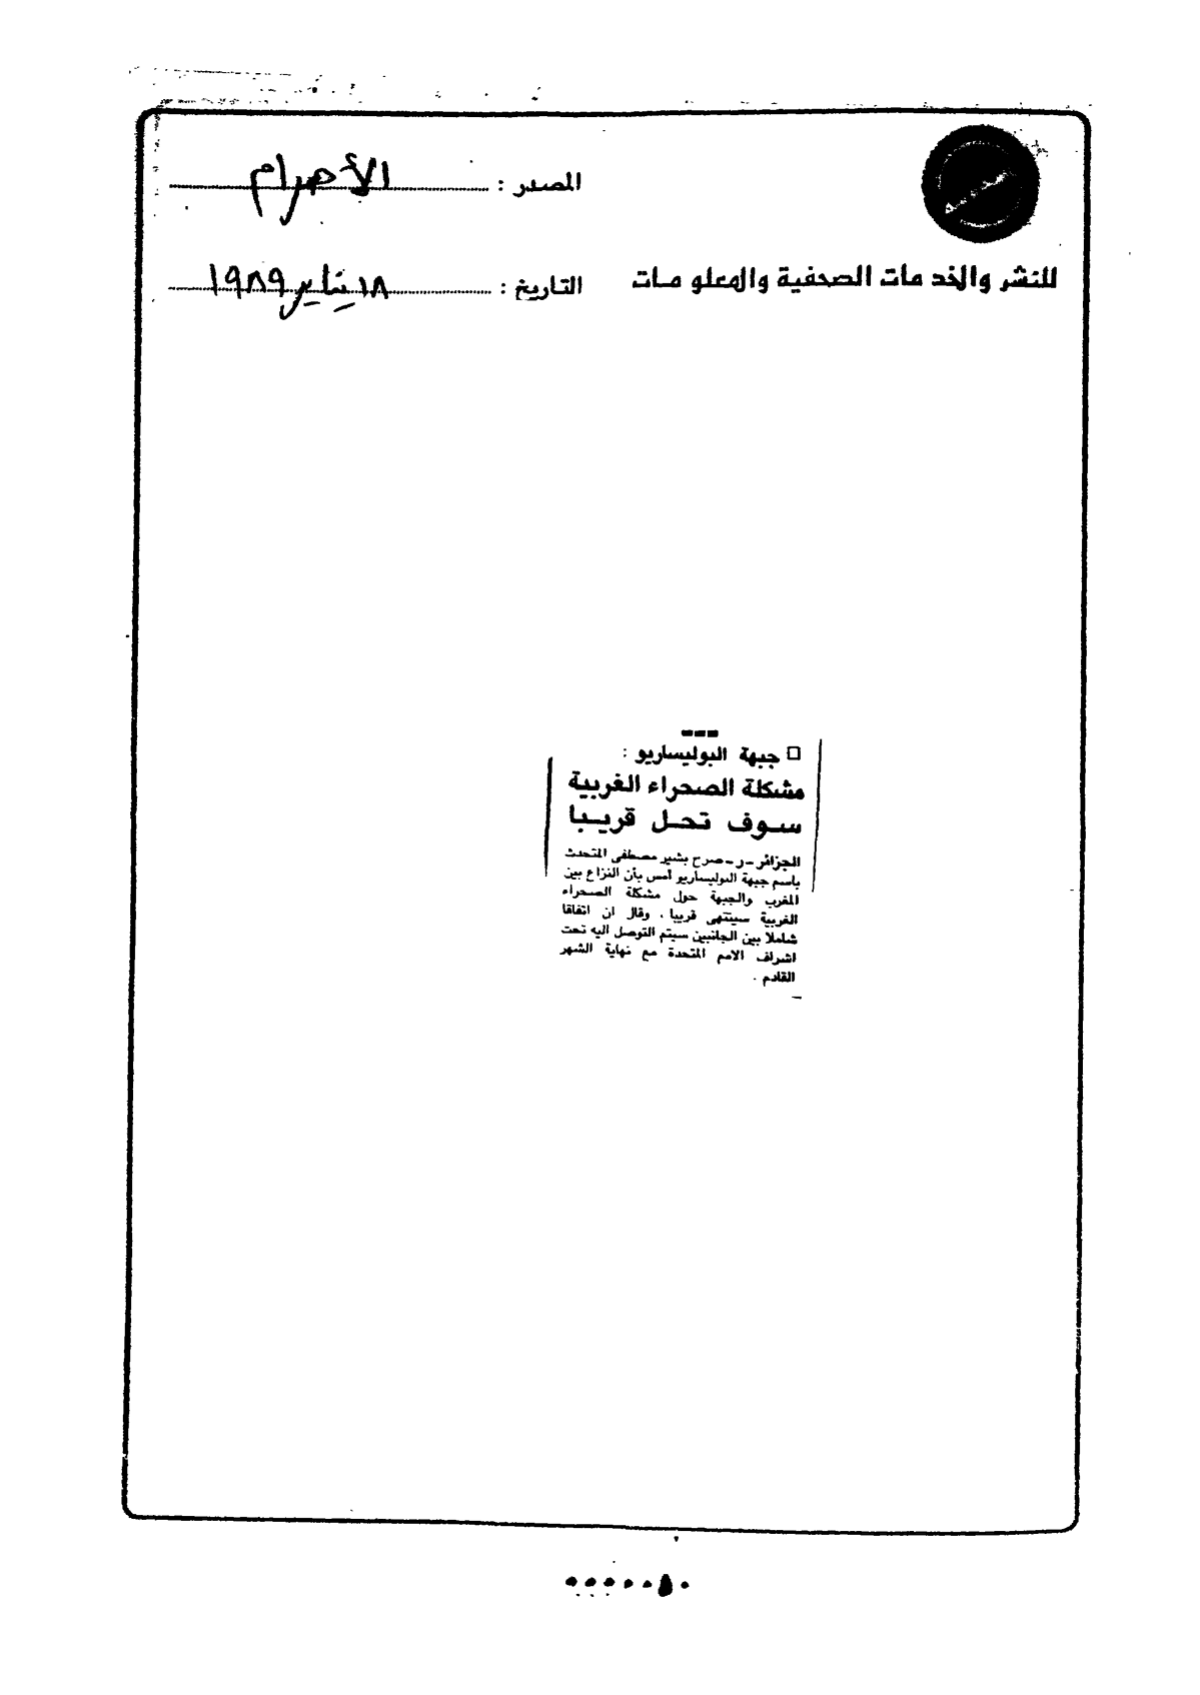 المصدر : الأهرام
للنشر والخدمات الصحفية والمعلومات
التاريخ : ١٨ يناير ١٩٨٩
□ جبهة البوليساريو :
مشكلة الصحراء الغربية
سوف تحل قريبا
الجزائر - ر - صرح بشير مصطفى المتحدث
باسم جبهة البوليساريو أمس بأن النزاع بين
المغرب والجبهة حول مشكلة الصحراء
الغربية سينتهى قريبا ، وقال ان اتفاقا
شاملا بين الجانبين سيتم التوصل اليه تحت
اشراف الامم المتحدة مع نهاية الشهر
القادم .